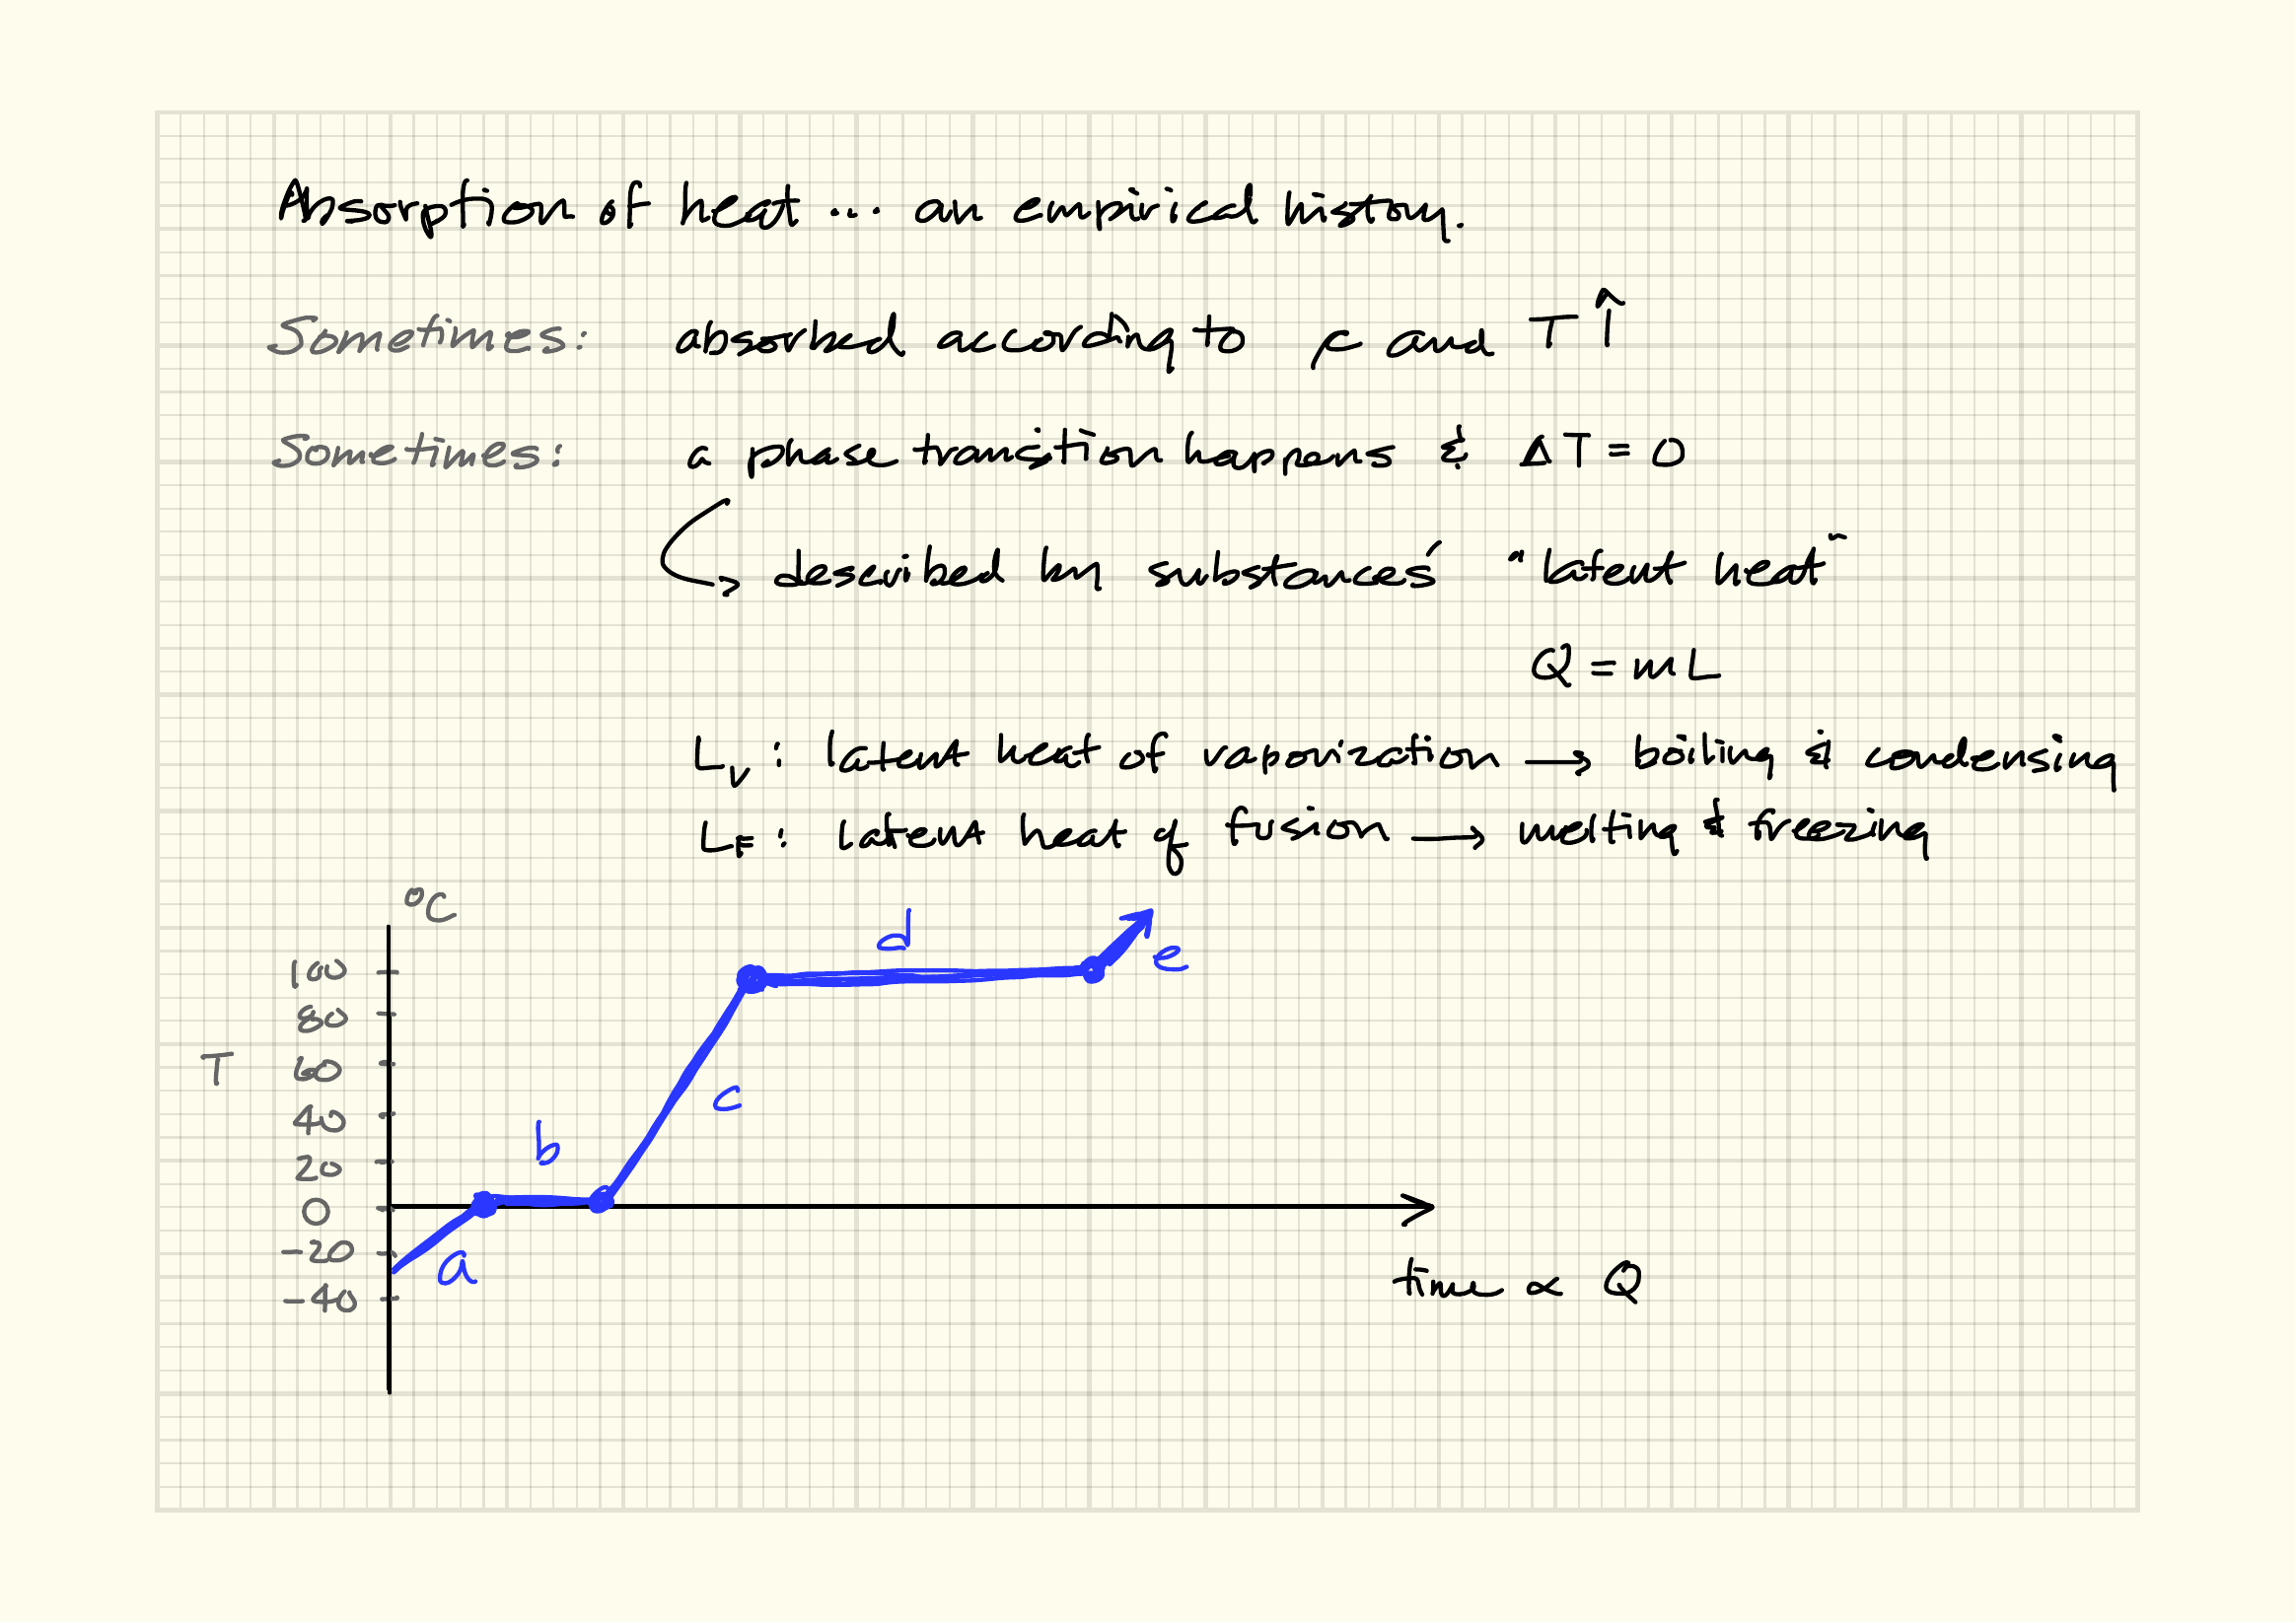 Absorption of heat ... an empirical history.
Sometimes: absorbed according to c and T ↑
Sometimes: a phase transition happens & ΔT = 0
↳ described by substances' "latent heat"
Q = mL
L_V : latent heat of vaporization → boiling & condensing
L_F : latent heat of fusion → melting & freezing
°C
d
e
100
80
T 60
c
40
b
20
0
-20
a
-40
time ∝ Q